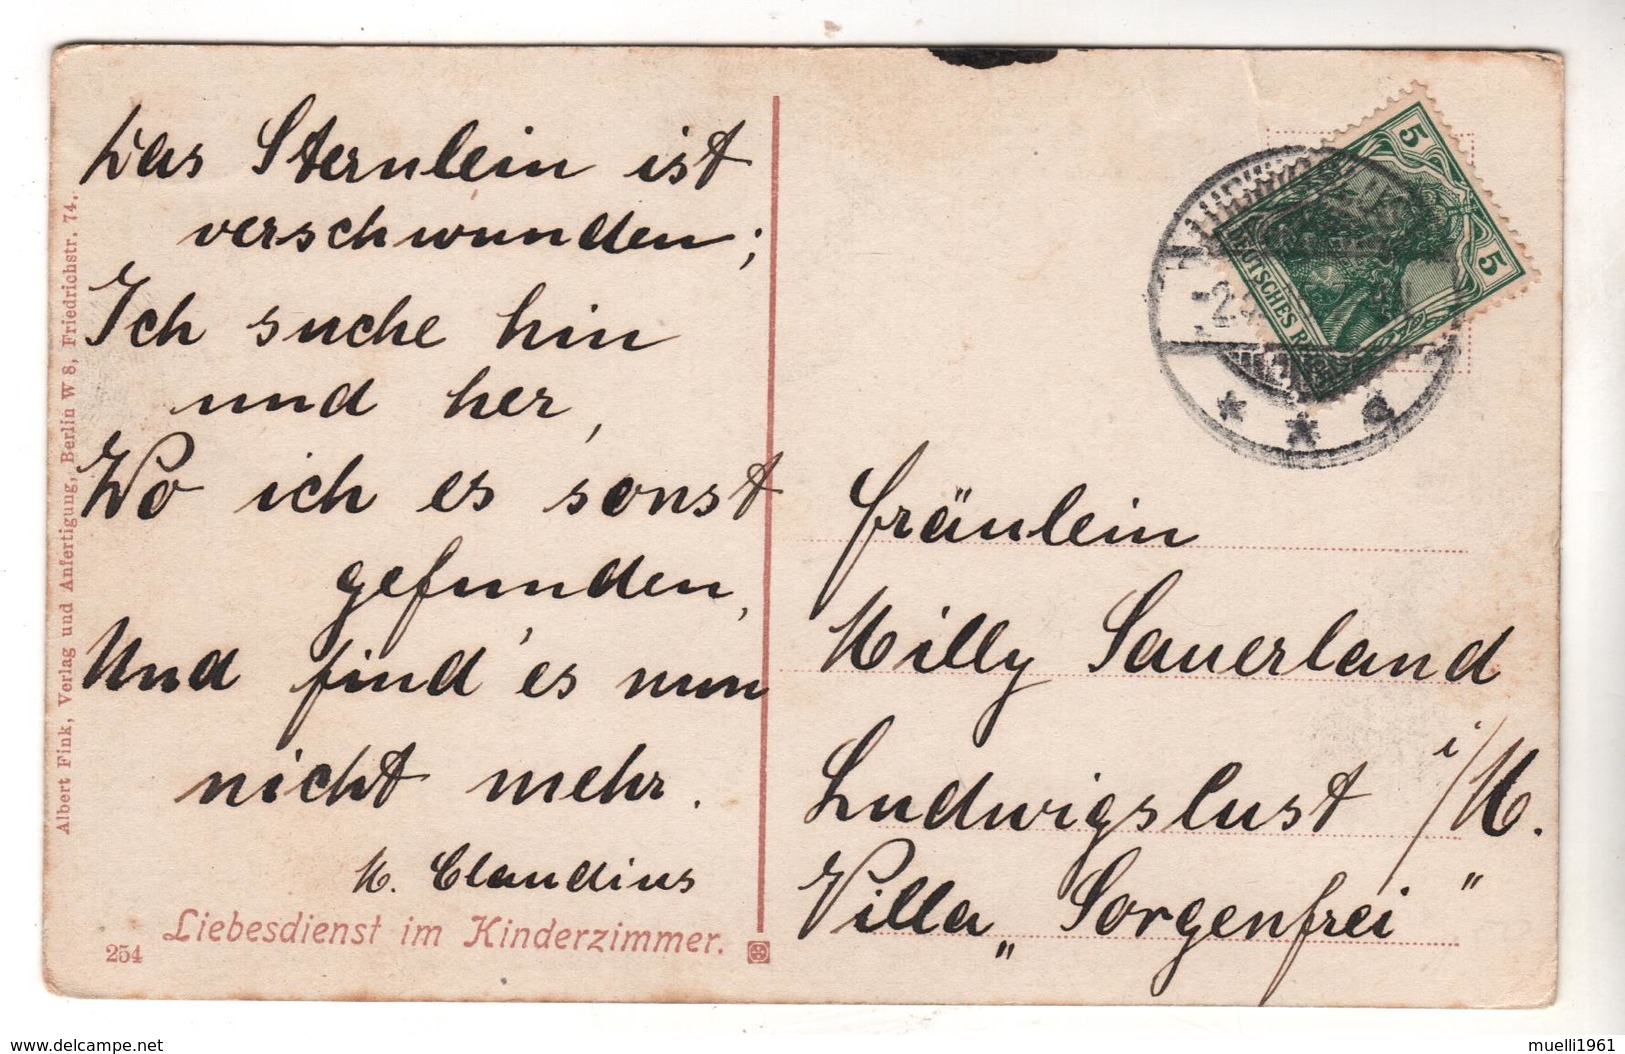 Das Sternlein ist
verschwunden;
Ich suche hin
und her,
Wo ich es sonst
gefunden,
Und find' es nun
nicht mehr.
M. Claudius
Liebesdienst im Kinderzimmer.
254
Albert Fink, Verlag und Anfertigung, Berlin W 8, Friedrichstr. 74.
5
5
DEUTSCHES REICH
Fräulein
Milly Sauerland
Ludwigslust i/M.
Villa „Sorgenfrei"
delcampe.net
muelli1961